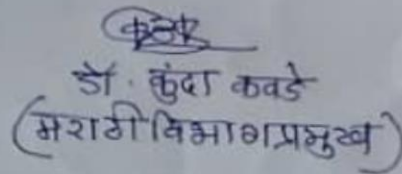 डॉ. कुंदा कवडे
(मराठी विभाग प्रमुख)